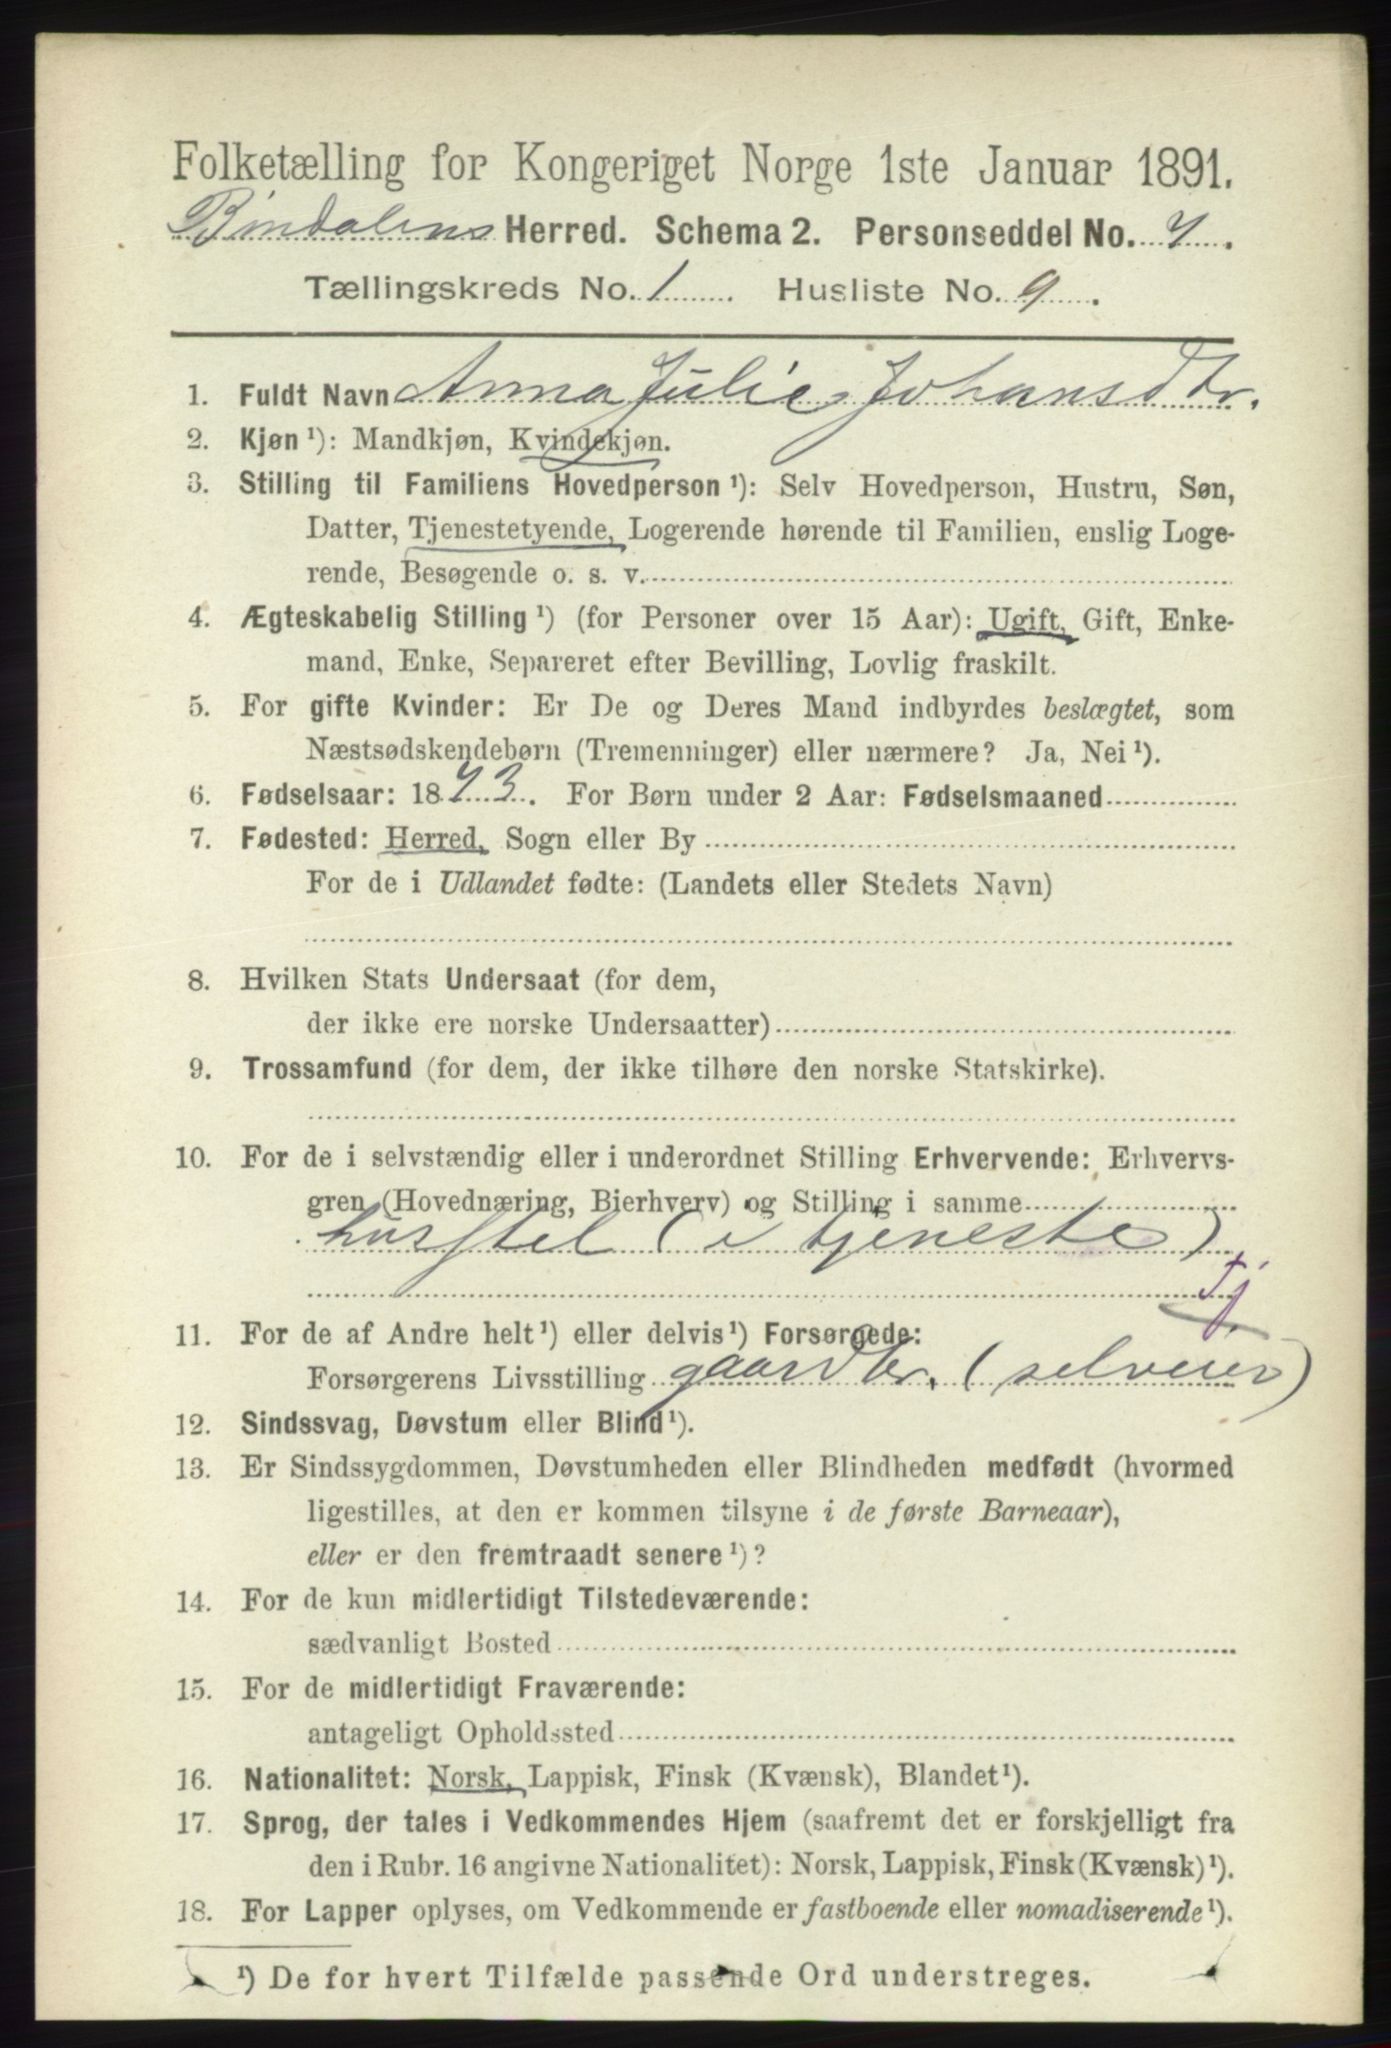 Folketælling for Kongeriget Norge 1ste Januar 1891.
Bindalens Herred. Schema 2. Personseddel No. 7.
Tællingskreds No. 1. Husliste No. 9.
1. Fuldt Navn Anna Julie Johansdtr.
2. Kjøn ¹): Mandkjøn, Kvindekjøn.
3. Stilling til Familiens Hovedperson ¹): Selv Hovedperson, Hustru, Søn,
Datter, Tjenestetyende, Logerende hørende til Familien, enslig Loge-
rende, Besøgende o. s. v.
4. Ægteskabelig Stilling ¹) (for Personer over 15 Aar): Ugift, Gift, Enke-
mand, Enke, Separeret efter Bevilling, Lovlig fraskilt.
5. For gifte Kvinder: Er De og Deres Mand indbyrdes beslægtet, som
Næstsødskendebørn (Tremenninger) eller nærmere? Ja, Nei ¹).
6. Fødselsaar: 1873. For Børn under 2 Aar: Fødselsmaaned
7. Fødested: Herred, Sogn eller By
For de i Udlandet fødte: (Landets eller Stedets Navn)
8. Hvilken Stats Undersaat (for dem,
der ikke ere norske Undersaatter)
9. Trossamfund (for dem, der ikke tilhøre den norske Statskirke).
10. For de i selvstændig eller i underordnet Stilling Erhvervende: Erhvervs-
gren (Hovednæring, Bierhverv) og Stilling i samme
husstel (i tjeneste)
Tj
11. For de af Andre helt ¹) eller delvis ¹) Forsørgede:
Forsørgerens Livsstilling gaardbr. (selveier)
12. Sindssvag, Døvstum eller Blind ¹).
13. Er Sindssygdommen, Døvstumheden eller Blindheden medfødt (hvormed
ligestilles, at den er kommen tilsyne i de første Barneaar),
eller er den fremtraadt senere ¹)?
14. For de kun midlertidigt Tilstedeværende:
sædvanligt Bosted
15. For de midlertidigt Fraværende:
antageligt Opholdssted
16. Nationalitet: Norsk, Lappisk, Finsk (Kvænsk), Blandet ¹).
17. Sprog, der tales i Vedkommendes Hjem (saafremt det er forskjelligt fra
den i Rubr. 16 angivne Nationalitet): Norsk, Lappisk, Finsk (Kvænsk) ¹).
18. For Lapper oplyses, om Vedkommende er fastboende eller nomadiserende ¹).
¹) De for hvert Tilfælde passende Ord understreges.